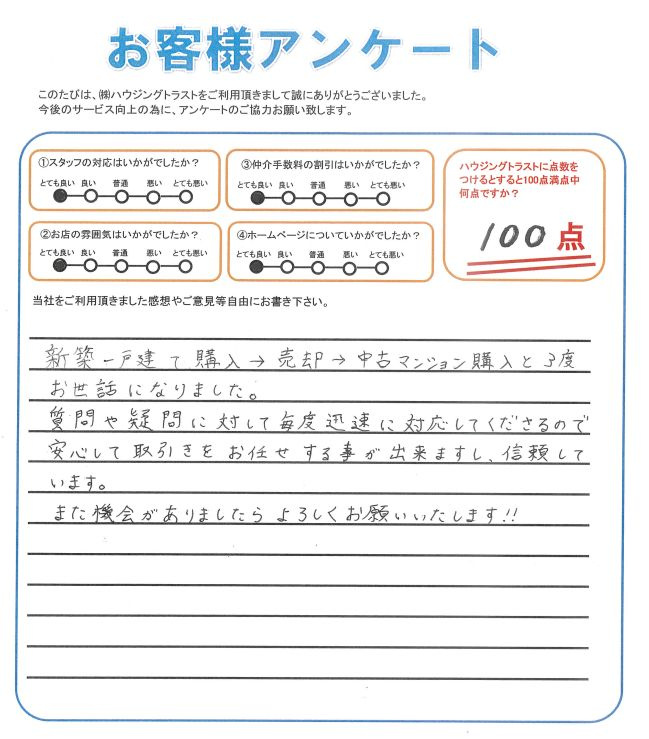 お客様アンケート
このたびは、㈱ハウジングトラストをご利用頂きまして誠にありがとうございました。
今後のサービス向上の為に、アンケートのご協力お願い致します。
①スタッフの対応はいかがでしたか？
とても良い 良い 普通 悪い とても悪い
②お店の雰囲気はいかがでしたか？
とても良い 良い 普通 悪い とても悪い
③仲介手数料の割引はいかがでしたか？
とても良い 良い 普通 悪い とても悪い
④ホームページについていかがでしたか？
とても良い 良い 普通 悪い とても悪い
ハウジングトラストに点数を
つけるとすると100点満点中
何点ですか？
100 点
当社をご利用頂きました感想やご意見等自由にお書き下さい。
新築一戸建て購入→売却→中古マンション購入と3度
お世話になりました。
質問や疑問に対して毎度迅速に対応してくださるので
安心して取引きをお任せする事が出来ますし、信頼して
います。
また機会がありましたらよろしくお願いいたします!!